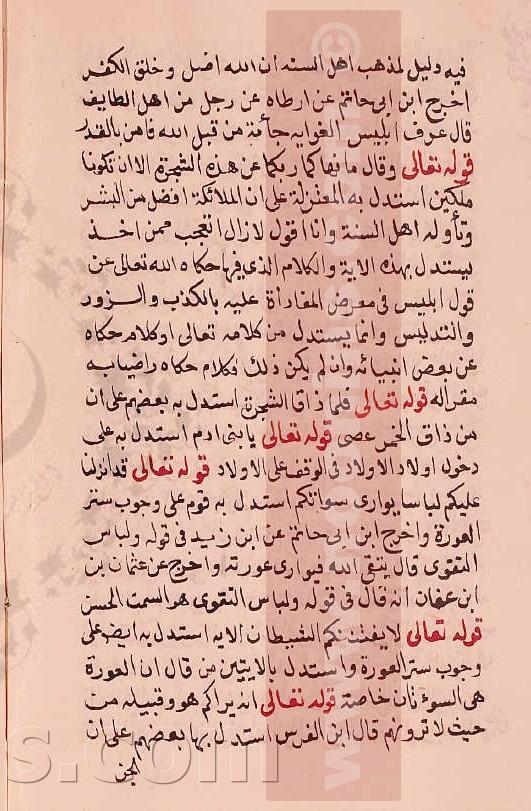 فيه دليل لمذهب اهل السنه ان الله اضل وخلق الكفر
اخرج ابن ابى حاتم عن ارطاه عن رجل من اهل الطايف
قال عرف ابليس الغوايه جأته من قبل الله فامن بالقدر
قوله تعالى وقال ما نهاكما ربكما عن هذه الشجرة الا ان تكونا
ملكين استدل به المعتزلة على ان الملائكة افضل من البشر
وتأوله اهل السنة وانا اقول لازال اتعجب ممن اخذ
يستدل بهذه الاية والكلام الذى فيها حكاه الله تعالى عن
قول ابليس فى معرض المقارأة عليه بالكذب والزور
والتدليس وانما يستدل من كلامه تعالى او كلام حكاه
عن بعض انبيائه وان لم يكن ذلك فكلام حكاه راضيا به
مقراله قوله تعالى فلما ذاقا الشجرة استدل به بعضهم على ان
من ذاق الخمر عصى قوله تعالى يابنى ادم استدل به على
دخول اولاد الاولاد فى الوقف على الاولاد قوله تعالى قد انزلنا
عليكم لباسا يوارى سواتكم استدل به قوم على وجوب ستر
العورة واخرج ابن ابى حاتم عن ابن زيد فى قوله ولباس
التقوى قال يتقى الله فيوارى عورته واخرج عن عثمان بن
ابن عفان انه قال فى قوله ولباس التقوى هو السمت الحسن
قوله تعالى لا يفتننكم الشيطان الايه استدل به ايض على
وجوب ستر العورة واستدل بالايتين من قال ان العورة
هى السوءتان خاصة قوله تعالى انه يراكم هو وقبيله من
حيث لا ترونهم قال ابن الفرس استدل بها بعضهم على ان
الجن
s.com